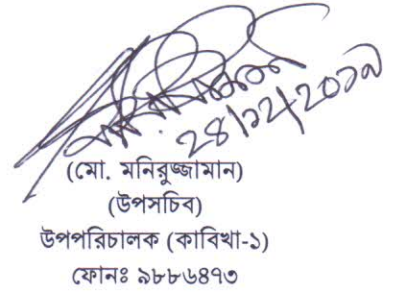 ২৪/১২/২০১৯
(মো. মনিরুজ্জামান)
(উপসচিব)
উপপরিচালক (কাবিখা-১)
ফোনঃ ৯৮৮৬৪৭৩